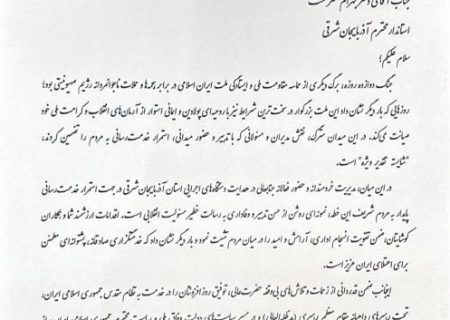 جناب آقای دکتر بهرام سرمست
استاندار محترم آذربایجان شرقی
سلام علیکم؛
جنگ دوازده روزه، برگ دیگری از حماسه مقاومت ملی و ایستادگی ملت ایران اسلامی در برابر هجمه‌ها و حملات ناجوانمردانه رژیم صهیونیستی بود؛
روزهایی که بار دیگر نشان داد این ملت بزرگوار در سخت‌ترین شرایط نیز با روحیه‌ای پولادین و ایمانی استوار از آرمان‌های انقلاب و کرامت ملی خود
صیانت می‌کند. در این میدان سترگ، نقش مدیران و مسئولانی که با تدبیر و حضور میدانی، استمرار خدمت‌رسانی به مردم را تضمین کردند،
"شایسته تقدیر ویژه" است.
در این میان، مدیریت خردمندانه و حضور فعالانه جنابعالی در هدایت دستگاه‌های اجرایی استان آذربایجان شرقی در جهت استمرار خدمت‌رسانی
پایدار به مردم شریف این خطه، نمونه‌ای روشن از حسن تدبیر و وفاداری به رسالت خطیر مسئولیت انقلابی است. اقدامات ارزشمند شما و همکاران
کوشایتان، ضمن تقویت انسجام اداری، آرامش و امید را در میان مردم تثبیت نمود و بار دیگر نشان داد که خدمتگزاری صادقانه، پشتوانه‌ای مطمئن
برای اعتلای ایران عزیز است.
اینجانب ضمن قدردانی از زحمات و تلاش‌های بی‌وقفه حضرت‌عالی، توفیق روزافزونتان را در خدمت به نظام مقدس جمهوری اسلامی ایران،
تحت رهبری‌های داهیانه مقام معظم رهبری (مدظله‌العالی) و در مسیر سیاست‌های دولت